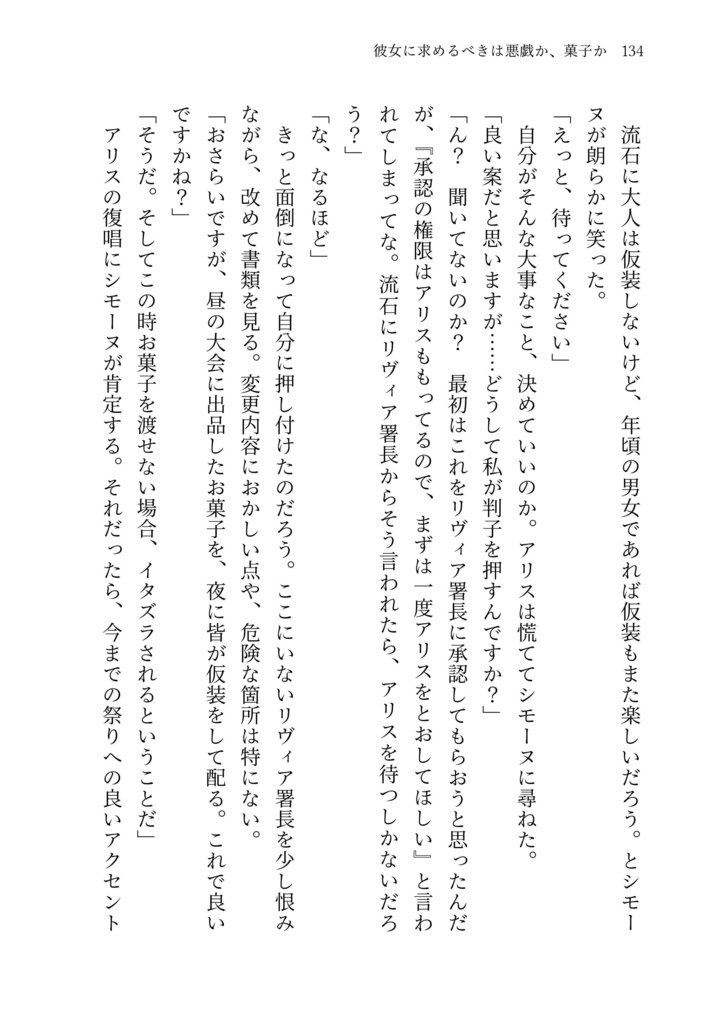 彼女に求めるべきは悪戯か、菓子か 134
流石に大人は仮装しないけど、年頃の男女であれば仮装もまた楽しいだろう。とシモー
ヌが朗らかに笑った。
「えっと、待ってください」
自分がそんな大事なこと、決めていいのか。アリスは慌ててシモーヌに尋ねた。
「良い案だと思いますが……どうして私が判子を押すんですか？」
「ん？　聞いてないのか？　最初はこれをリヴィア署長に承認してもらおうと思ったんだ
が、『承認の権限はアリスももってるので、まずは一度アリスをとおしてほしい』と言わ
れてしまってな。流石にリヴィア署長からそう言われたら、アリスを待つしかないだろ
う？」
「な、なるほど」
きっと面倒になって自分に押し付けたのだろう。ここにいないリヴィア署長を少し恨み
ながら、改めて書類を見る。変更内容におかしい点や、危険な箇所は特にない。
「おさらいですが、昼の大会に出品したお菓子を、夜に皆が仮装をして配る。これで良い
ですかね？」
「そうだ。そしてこの時お菓子を渡せない場合、イタズラされるということだ」
アリスの復唱にシモーヌが肯定する。それだったら、今までの祭りへの良いアクセント